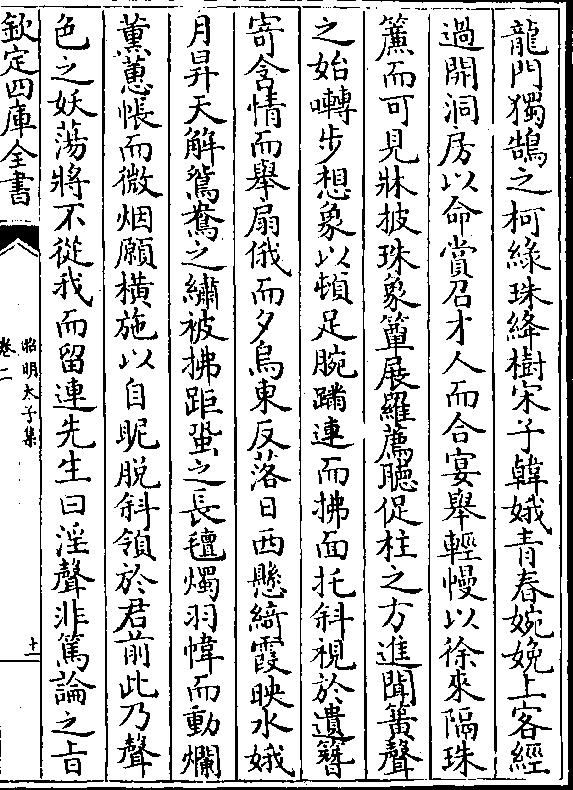 龍門獨鵠之柯緣珠絳樹宋子韓娥青春婉娩上客經
過開洞房以命賞召才人而合宴舉輕幔以徐來隔珠
簾而可見牀披珠象簟展羅薦聽促柱之方進聞簧聲
之始囀步想象以頓足腕蹁連而拂面托斜視於遺簪
寄含情而舉扇俄而夕鳥東反落日西懸綺霞映水娥
月昇天解鴛鴦之繡被拂距蛩之長氊燭羽幃而動爛
薰蕙帳而微烟願橫施以自昵脱斜領於君前此乃聲
色之妖蕩將不從我而留連先生曰淫聲非篤論之㫖
欽定四庫全書
昭明太子集
卷二
十一